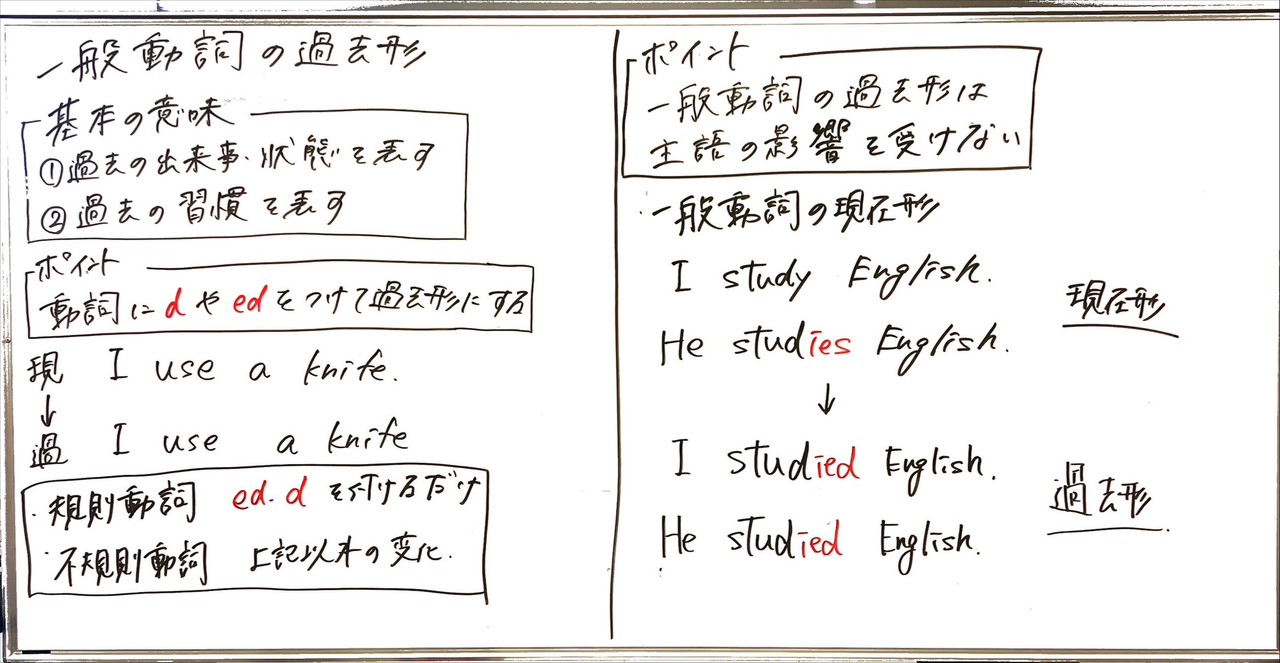 一般動詞の過去形
基本の意味
①過去の出来事・状態を表す
②過去の習慣を表す
ポイント
動詞にdやedをつけて過去形にする
現 I use a knife.
↓
過 I use a knife
・規則動詞 ed.d を付けるだけ
・不規則動詞 上記以外の変化.
ポイント
一般動詞の過去形は
主語の影響を受けない
・一般動詞の現在形
I study English.
He studies English.
現在形
↓
I studied English.
He studied English.
過去形